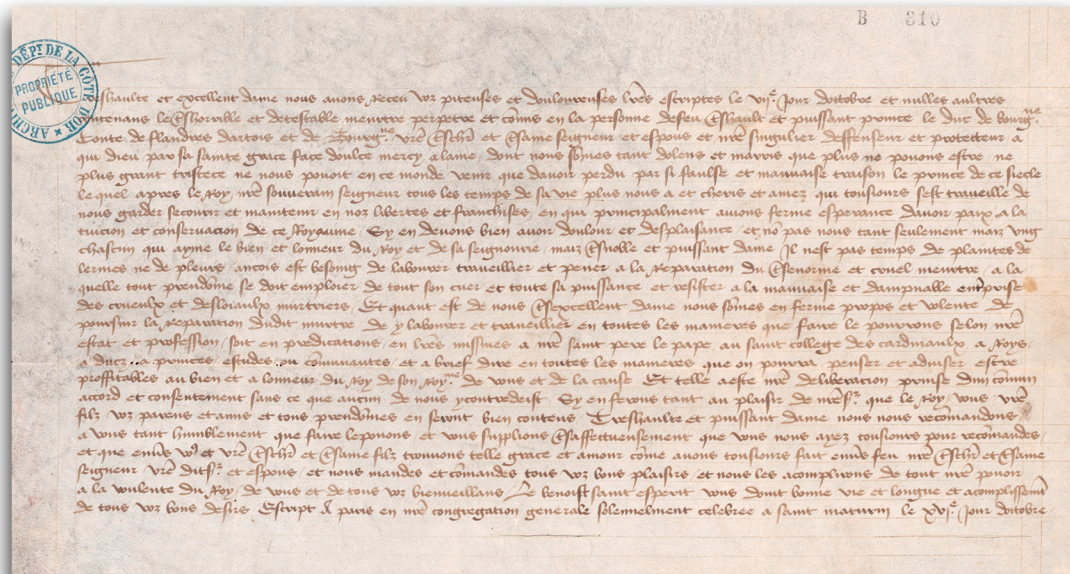 B 310
ARCH DÉPT DE LA CÔTE D'OR
PROPRIÉTÉ PUBLIQUE
Treshaulte et excellent dame nous avons receu voz piteuses et douloureuses lres escriptes le vije jour doctobre et nulles aultres
contenans le treshorrible et detestable meurtre perpetre et comis en la personne defeu treshault et puissant prince le duc de bourgne
Conte de flandres dartois et de Bourgne vre treschr et tresame seigneur et espous et nre singulier deffenseur et protecteur a
qui dieu par sa sainte grace face doulce mercy alame, dont nous somes tant dolens et marris que plus ne pouons estre, ne
plus grant tristece ne nous pouoit en ce monde venir que davoir perdu par si faulse et mauvaise traison le prince de ce siecle
le quel apres le Roy nre souverain seigneur tous les temps de sa vie plus nous a et cheris et amez qui tousiours sest traveille de
nous garder secourir et maintenir en noz libertes et franchises, en qui principalment avions ferme esperance davoir paix a la
tuicion et conservacion de ce Royaume, Sy en devons bien avoir doulour et desplaisance, et no pas nous tant seulement maiz ung
chascun qui ayme le bien et lonneur du Roy et de sa seignourie, maiz tresnoble et puissant dame, Il nest pas temps de plaintes de
lermes ne de pleurs, ancois est besoing de labourer traveillier et pener a la reparation du tresenorme et cruel meurtre, a la
quelle tout prendome se doit emploier de tout son cuer et toute sa puissance et resister a la mauvaise et dampnable entprise
des crueulx et desloiaulx murtriers, Et quant est de nous tresexcellent dame nous somes en ferme propos et volente de
poursuir la reparation dudit murtre de y labourer et traveillier en toutes les manieres que faire le pourrons selon nre
estat et profession, soit en predicacions, en lres missives a nre saint pere le pape au saint college des cardinaulx a Roys
a ducz a princes, estudes, ou comunautes, et a brief dire en toutes les manieres que on pourra penser et adviser estre
proffitables au bien et a lonneur du Roy de son Roy.me de vous et de la cause Et telle a este nre deliberation prinse dun comun
accord et consentement sans ce que aucun de nous ycontredeist, Sy en ferons tant au plaisir de nresr que le Roy vous vre
filz voz parens et amis et tous prendomes en seront bien contens Treshaulte et puissant dame nous nous recomandons
a vous tant humblement que faire le pouons, et vous supplions tresaffectueusement que vous nous ayez tousiours pour recomandes
et que envs vos et vre treschr et tresame filz trouvons telle grace et amour come avons tousiours fait envs feu nre treschr et tresame
seigneur vre dit sr et espous, et nous mandes et comandes tous voz bons plaisirs, et nous les acomplirons de tout nre pouoir
a la voulente du Roy, de vous et de tous voz bienveillans Le benoist saint esperit vous doint bonne vie et longue et acomplissemt
de tous voz bons desirs Escript A paris en nre congregation generale solennelment celebree a saint maturin le xvje jour doctobre